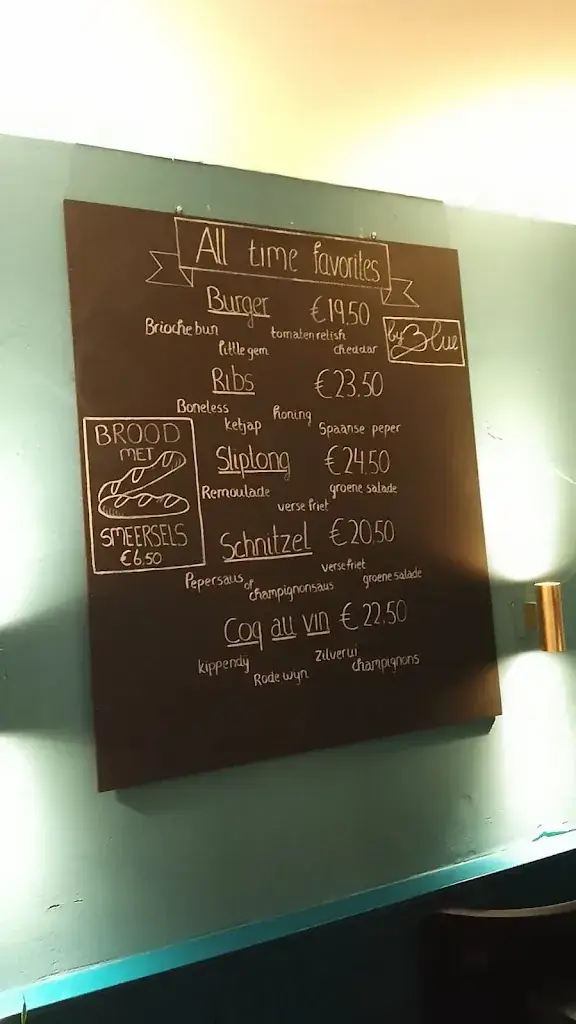 All time favorites
Burger €19.50
Brioche bun tomaten relish
little gem cheddar
by Blue
Ribs €23.50
Boneless honing
ketjap Spaanse peper
BROOD
MET
SMEERSELS
€6,50
Sliptong €24.50
Remoulade groene salade
verse friet
Schnitzel €20.50
Pepersaus of verse friet
champignonsaus groene salade
Coq au vin €22.50
kippendij zilverui
Rode wyn champignons